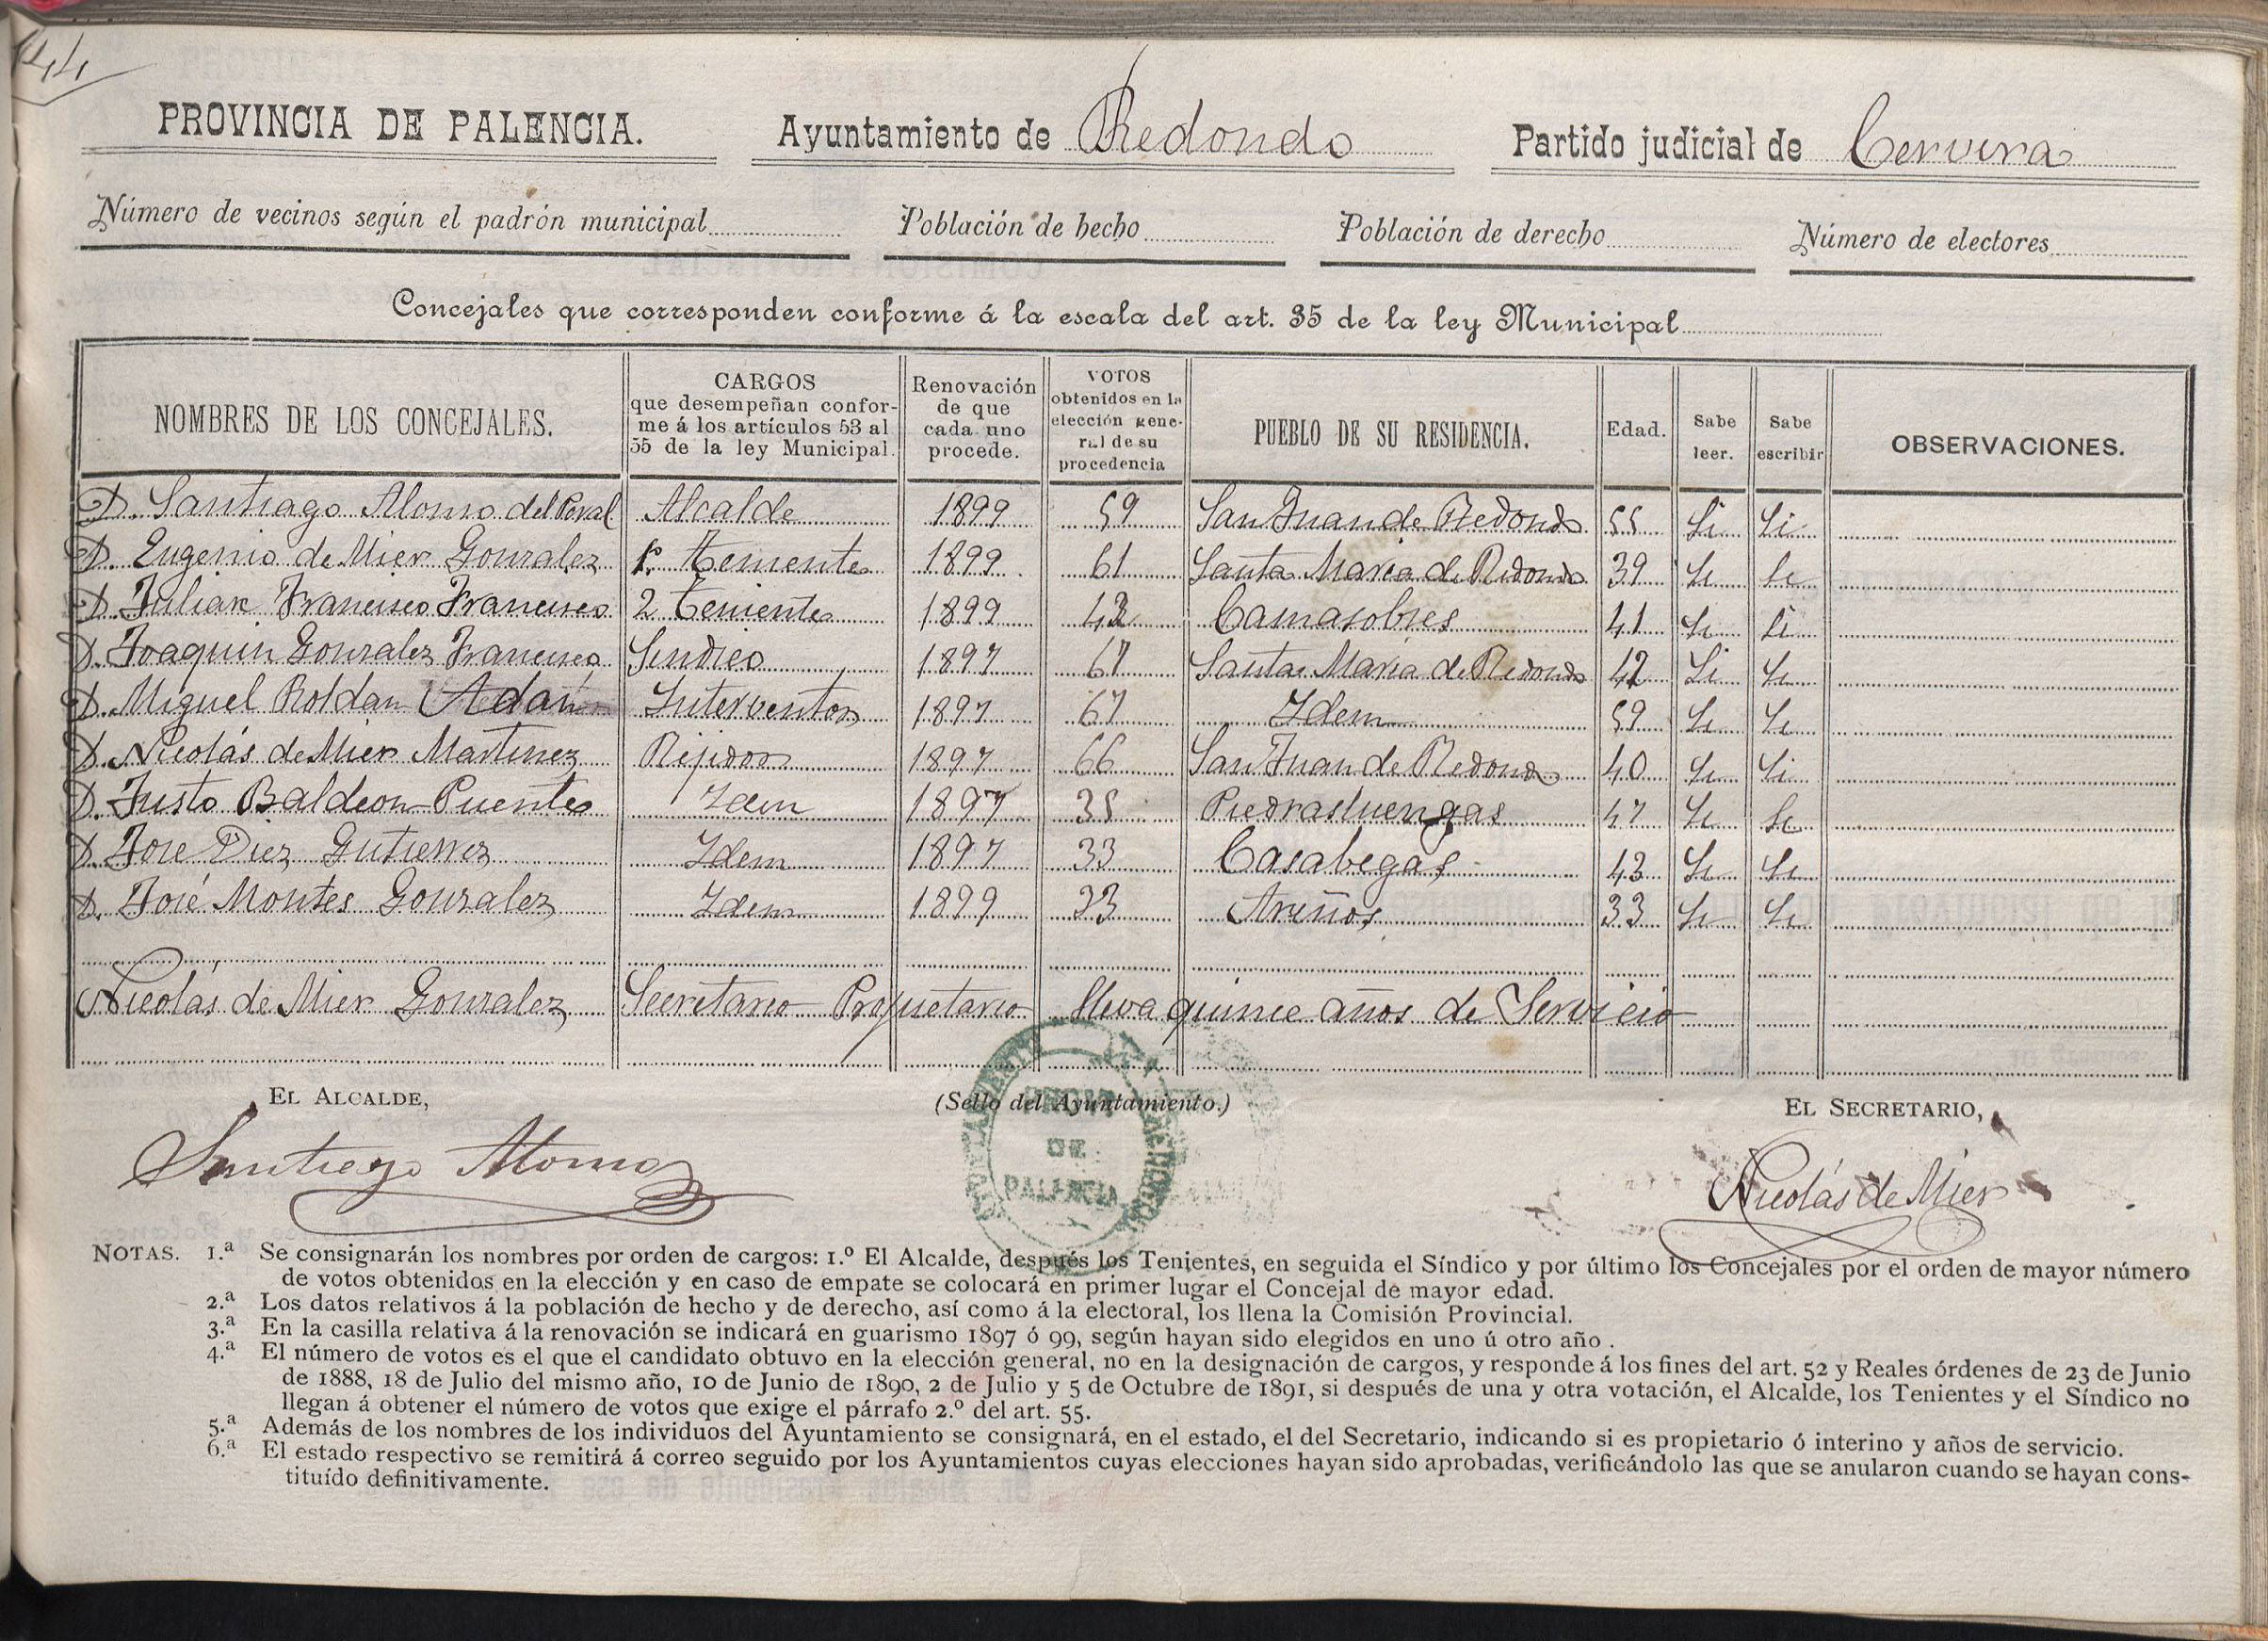 44
PROVINCIA DE PALENCIA. Ayuntamiento de Redondo Partido judicial de Cervera
Número de vecinos según el padrón municipal Población de hecho Población de derecho Número de electores
Concejales que corresponden conforme á la escala del art. 35 de la ley Municipal
NOMBRES DE LOS CONCEJALES. CARGOS que desempeñan confor- me á los artículos 53 al 55 de la ley Municipal. Renovación de que cada uno procede. VOTOS obtenidos en la elección gene- ral de su procedencia PUEBLO DE SU RESIDENCIA. Edad. Sabe leer. Sabe escribir OBSERVACIONES.
D. Santiago Alonso del Poval Alcalde 1899 59 San Juan de Redondo 55 Si Si
D. Eugenio de Mier Gonzalez 1º Teniente 1899 61 Santa Maria de Redondo 39 Si Si
D. Julian Francisco Francisco 2 Teniente 1899 42 Camasobres 41 Si Si
D. Joaquin Gonzalez Francisco Sindico 1897 67 Santa Maria de Redondo 42 Si Si
D. Miguel Roldan Adán Interventor 1897 67 Idem 59 Si Si
D. Nicolás de Mier Martinez Rejidor 1897 66 San Juan de Redondo 40 Si Si
D. Justo Baldeon Puente Idem 1897 35 Piedrasluengas 47 Si Si
D. Jose Diez Gutierrez Idem 1897 33 Casabegas 43 Si Si
D. José Montes Gonzalez Idem 1899 33 Areños 33 Si Si
Nicolás de Mier Gonzalez Secretario Propietario lleva quince años de Servicio
EL ALCALDE, (Sello del Ayuntamiento.) EL SECRETARIO,
DE
PALENCIA
Santiago Alonso Nicolás de Mier
NOTAS. 1.ª Se consignarán los nombres por orden de cargos: 1.º El Alcalde, después los Tenientes, en seguida el Síndico y por último los Concejales por el orden de mayor número
de votos obtenidos en la elección y en caso de empate se colocará en primer lugar el Concejal de mayor edad.
2.ª Los datos relativos á la población de hecho y de derecho, así como á la electoral, los llena la Comisión Provincial.
3.ª En la casilla relativa á la renovación se indicará en guarismo 1897 ó 99, según hayan sido elegidos en uno ú otro año.
4.ª El número de votos es el que el candidato obtuvo en la elección general, no en la designación de cargos, y responde á los fines del art. 52 y Reales órdenes de 23 de Junio
de 1888, 18 de Julio del mismo año, 10 de Junio de 1890, 2 de Julio y 5 de Octubre de 1891, si después de una y otra votación, el Alcalde, los Tenientes y el Síndico no
llegan á obtener el número de votos que exige el párrafo 2.º del art. 55.
5.ª Además de los nombres de los individuos del Ayuntamiento se consignará, en el estado, el del Secretario, indicando si es propietario ó interino y años de servicio.
6.ª El estado respectivo se remitirá á correo seguido por los Ayuntamientos cuyas elecciones hayan sido aprobadas, verificándolo las que se anularon cuando se hayan cons-
tituído definitivamente.